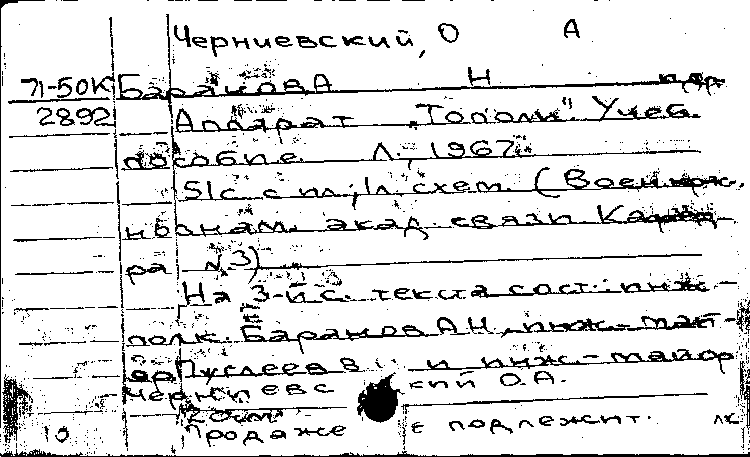 Черниевский, О А
71-50К Баранов А Н и др.
2892 Аппарат "Тополь". Учеб.
пособие. Л., 1967.
51с. с ил.; 1л. схем. (Воен. Кр.
знам. акад. связи Кафед-
ра №3)
На 3-й с. текста сост.: инж-
полк. Баранов АН, инж.-май-
ор Пуслеев В и инж.-майор
Черниевский О.А.
20см.
10 Продаже не подлежит. лк